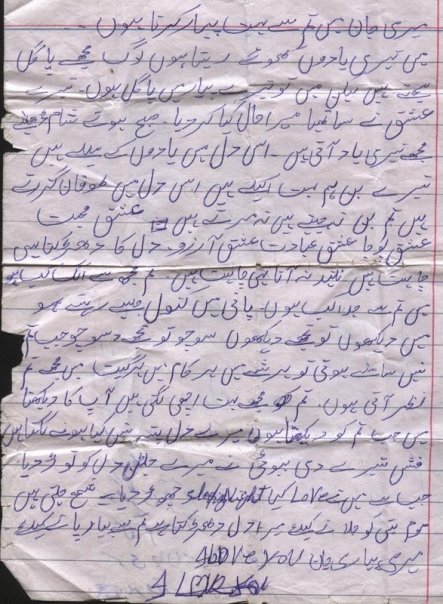 میری جان میں تم سے بہت پیار کرتا ہوں ۔
میں تیری یادوں کھوئے رہتا ہوں لوگ مجھے پاگل
سمجتے ہیں میں تو تیرے پیار میں پاگل ہوں۔ تیرے
عشق نے ساتھیا میرا حال کیا کر دیا۔ صبح ہوتے شام ڈھلے
مجھے تیری یاد آتی ہیں۔ اس دل میں یادوں کے میلے ہیں
تیرے بن ہم بہت اکیلے ہیں اس دل میں طوفان گزرتے
ہیں تم بن نہ جیتے ہیں نہ مرتے ہیں عشق محبت
عشق عبادت عشق آرزو۔ دل کا دھڑکنا ہی
چاہت ہیں نیند نہ آنا ہی چاہت ہیں۔ تم مجھ سے الگ
میں تم سے جدا کب ہوں۔ پانی میں کنول جیسے رہتے ہو
میں دیکھوں تو مجھے دیکھوں سوچو تو مجھے سوچو جب تم
نہیں سامنے ہوتی تو پر ہر کام میں ہر گیت میں مجھے تم
نظر آتی ہوں۔ تم مجھے بہت اچھی لگتی ہیں آپ کا دیکھنا
میں جب تم کو دیکھتا ہوں میرے دل پتہ نہیں کیا ہونے لگتا ہیں
تیرے دی نے میرے دل کو توڑ دیا۔
جب سے میں نے Love کیا sleep Night چھوڑ دیا۔ شمع جلتی ہیں
موم بتی کو جلانے کیلئے میرا دل دھڑکتا ہے تم سے پیار پانے کیلئے
میری پیاری جان I Love you
I Love you